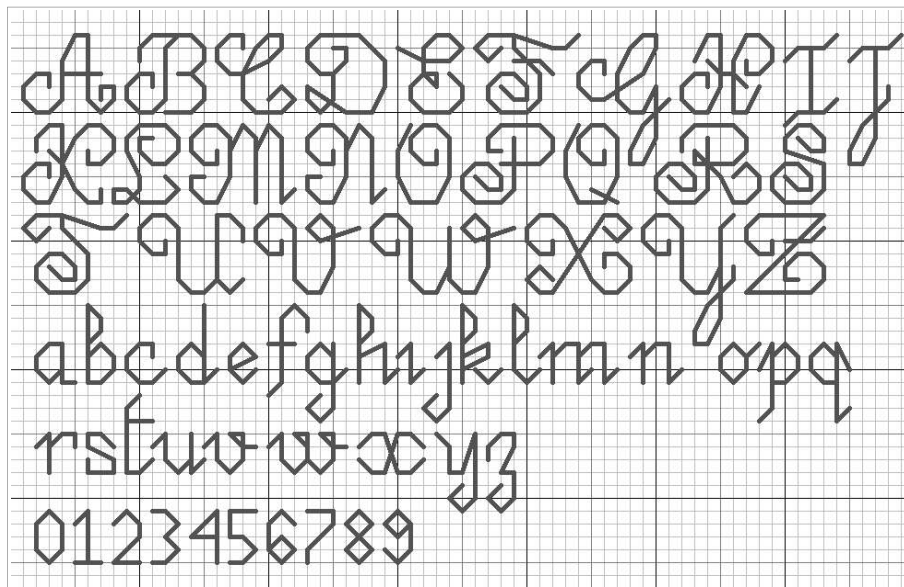 A B C D E F G H I J
K L M N O P Q R S
T U V W X Y Z
a b c d e f g h i j k l m n o p q
r s t u v w x y z
0 1 2 3 4 5 6 7 8 9